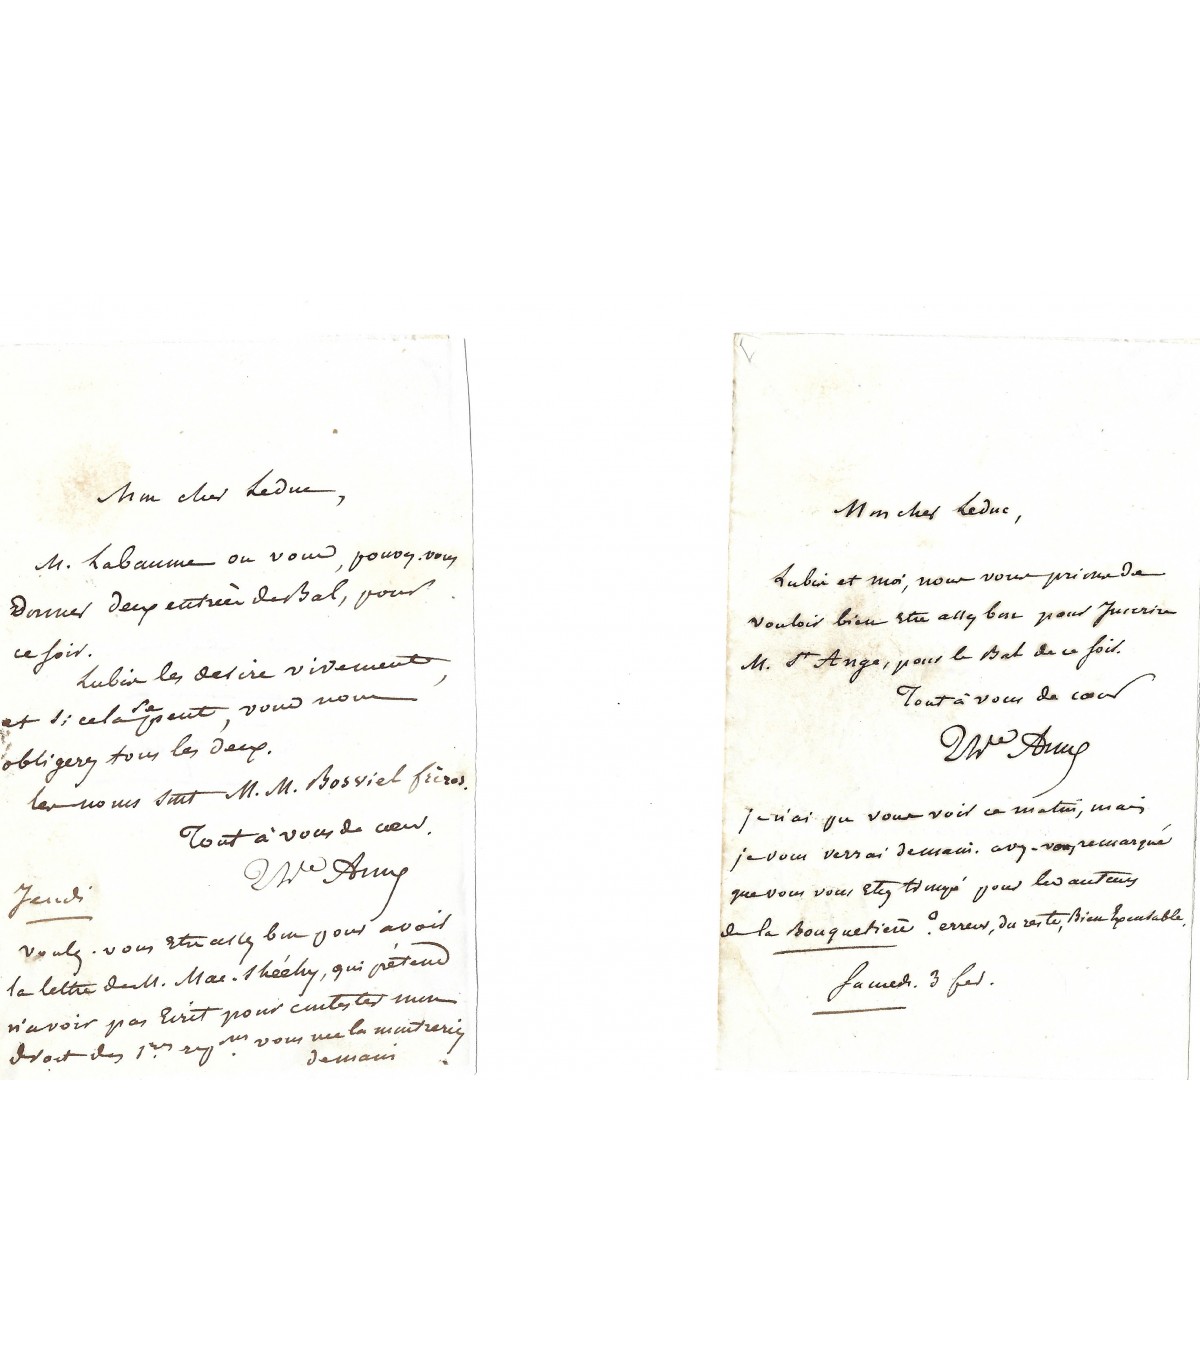 Mon cher Leduc,
M. Labaume ou vous, pouvez-vous
donner deux entrées de Bal, pour
ce soir.
Lubin les desire vivement,
et si cela se peut, vous nous
obligerez tous les deux.
les noms sont M. M. Bosviel frères.
Tout à vous de cœur.
Th.re Anne
Jeudi
voulez-vous etre assez bon pour avoir
la lettre de M. Mac-Shéehy, qui prétend
n'avoir pas écrit pour contester mon
droit des 1.res rep.ons vous me la montrerez
demain
Mon cher Leduc,
Lubin et moi, nous vous prions de
vouloir bien etre assez bon pour Inscrire
M. St Ange, pour le Bal de ce soir.
Tout à vous de cœur
Th.re Anne
je n'ai pu vous voir ce matin, mais
je vous verrai demain. avez-vous remarqué
que vous vous etes trompé pour les auteurs
de la Bouquetière. erreur, du reste, Bien Excusable.
Samedi 3 fev.